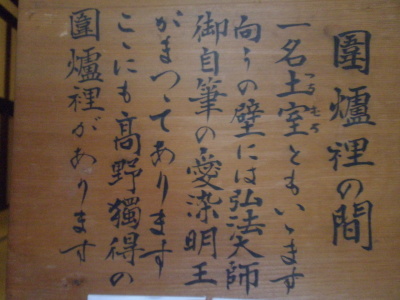 圍爐裡の間
一名土室ともいゝます
つちむろ
向うの壁には弘法大師
御自筆の愛染明王
がまつってあります
ここにも高野獨得の
圍爐裡があります